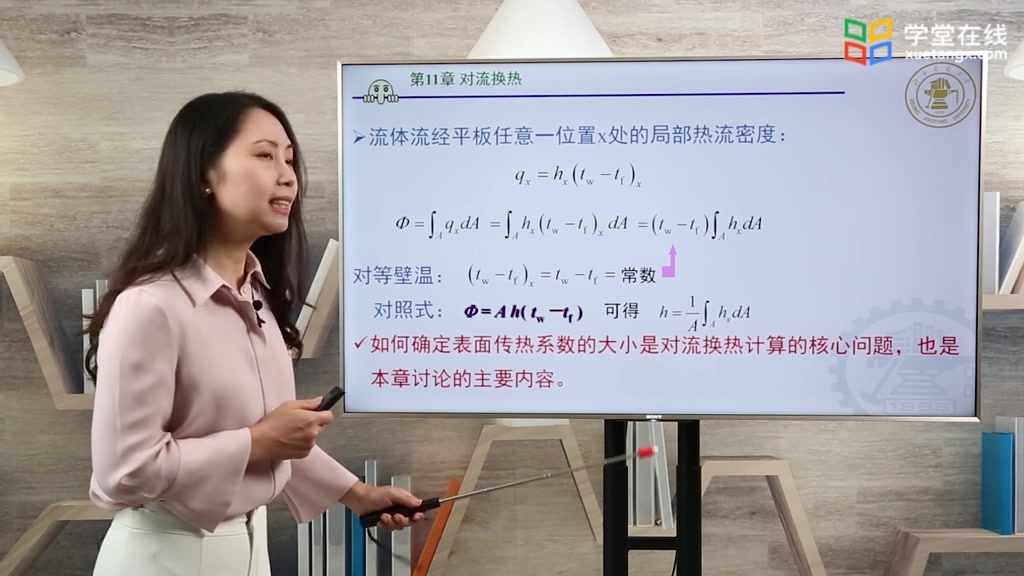 学堂在线
xuetangx.com
第11章 对流换热
➤流体流经平板任意一位置x处的局部热流密度：
qₓ = hₓ(t_w − t_f)ₓ
Φ = ∫_A qₓdA = ∫_A hₓ(t_w − t_f)ₓ dA = (t_w − t_f)∫_A hₓdA
对等壁温： (t_w − t_f)ₓ = t_w − t_f = 常数
对照式： Φ = A h( t_w − t_f ) 可得 h = 1/A ∫_A hₓdA
✓如何确定表面传热系数的大小是对流换热计算的核心问题，也是
本章讨论的主要内容。